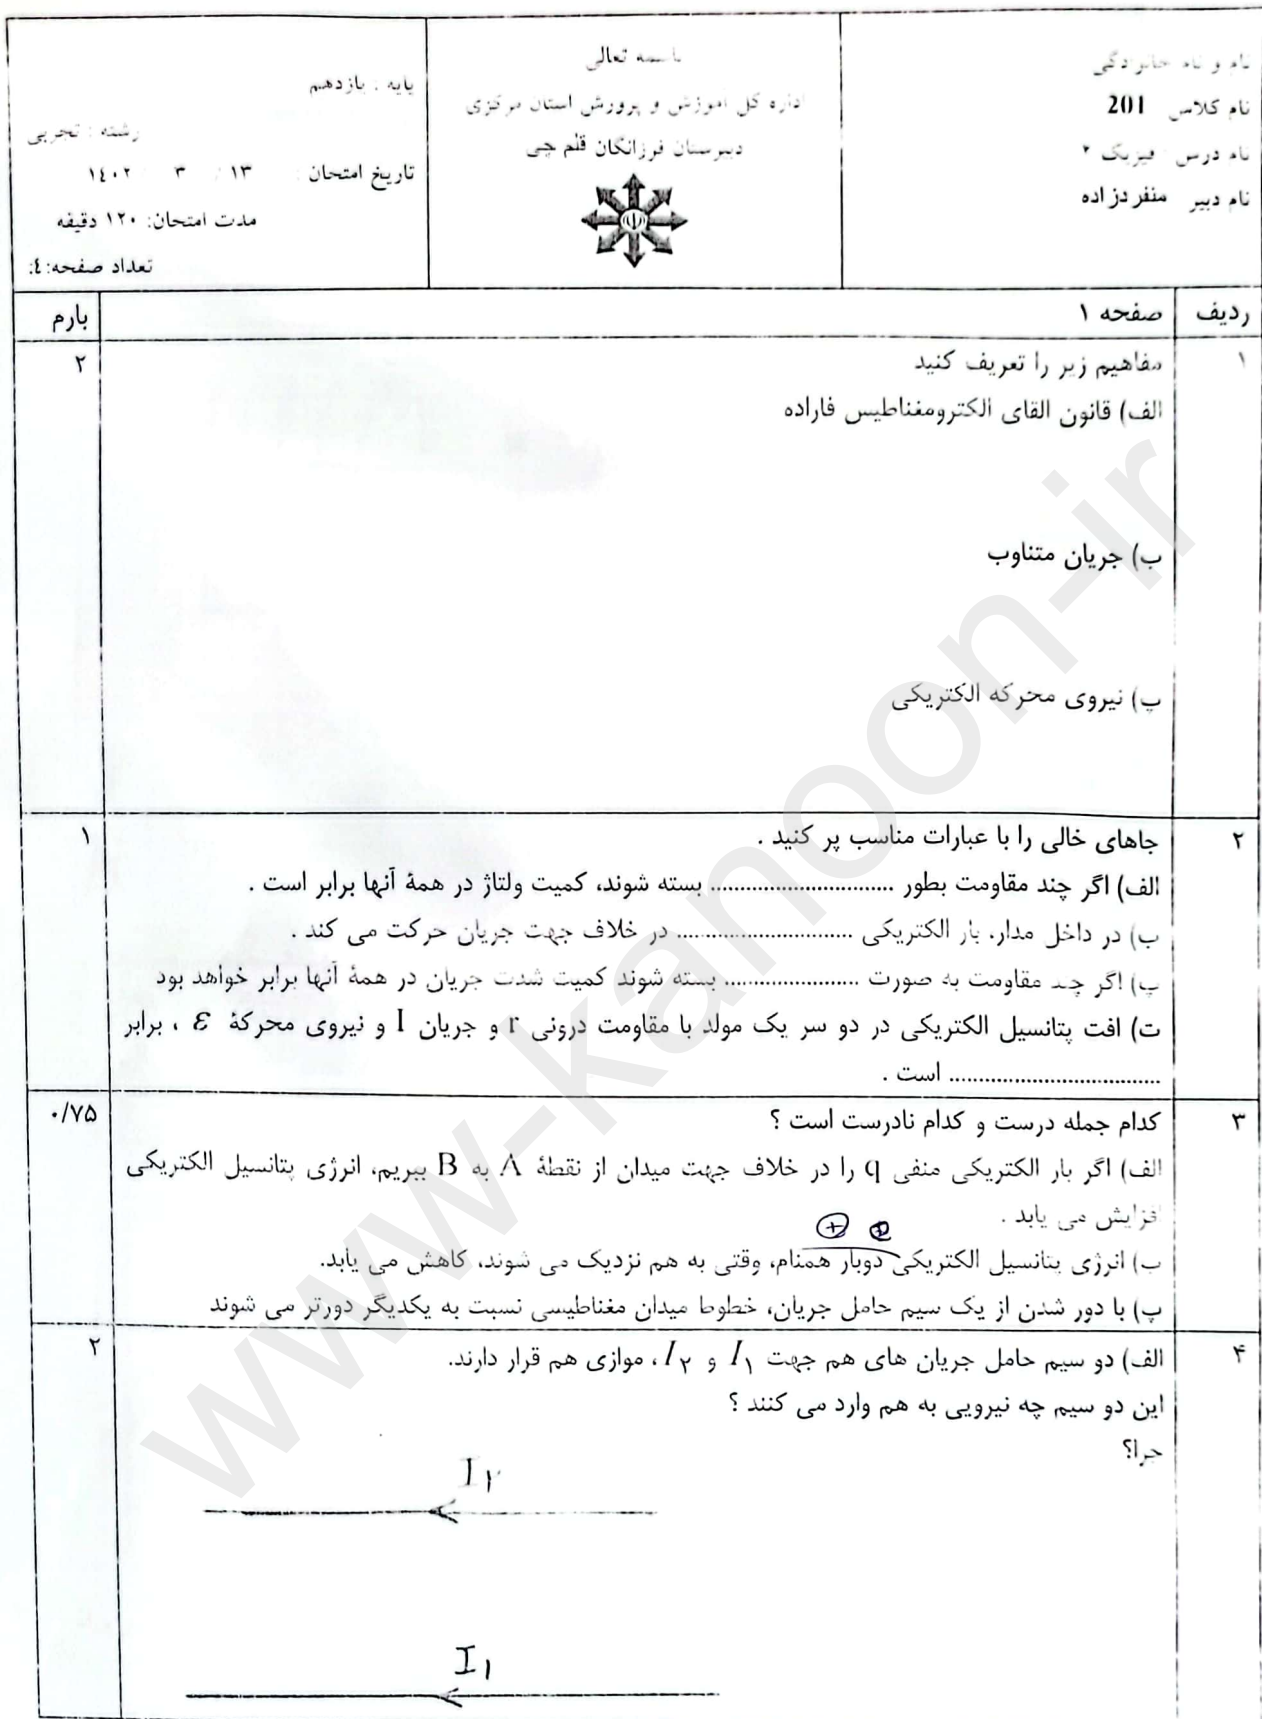 نام و نام خانوادگی
نام کلاس 201
نام درس : فیزیک ۲
نام دبیر منفردزاده
باسمه تعالی
اداره کل آموزش و پرورش استان مرکزی
دبیرستان فرزانگان قلم چی
پایه : یازدهم
رشته : تجربی
تاریخ امتحان : ۱۳ / ۳ / ۱۴۰۲
مدت امتحان: ۱۲۰ دقیقه
تعداد صفحه: ٤:
ردیف
صفحه ۱
بارم
۱
مفاهیم زیر را تعریف کنید
۲
الف) قانون القای الکترومغناطیس فاراده
ب) جریان متناوب
پ) نیروی محرکه الکتریکی
۲
جاهای خالی را با عبارات مناسب پر کنید .
۱
الف) اگر چند مقاومت بطور .............................. بسته شوند، کمیت ولتاژ در همۀ آنها برابر است .
ب) در داخل مدار، بار الکتریکی .............................. در خلاف جهت جریان حرکت می کند .
پ) اگر چند مقاومت به صورت ....................... بسته شوند کمیت شدت جریان در همۀ آنها برابر خواهد بود
ت) افت پتانسیل الکتریکی در دو سر یک مولد با مقاومت درونی r و جریان I و نیروی محرکۀ ε ، برابر
.................................. است .
۳
کدام جمله درست و کدام نادرست است ؟
۰/۷۵
الف) اگر بار الکتریکی منفی q را در خلاف جهت میدان از نقطۀ A به B ببریم، انرژی پتانسیل الکتریکی
افزایش می یابد .
+ +
ب) انرژی پتانسیل الکتریکی دوبار همنام، وقتی به هم نزدیک می شوند، کاهش می یابد.
پ) با دور شدن از یک سیم حامل جریان، خطوط میدان مغناطیسی نسبت به یکدیگر دورتر می شوند
۴
الف) دو سیم حامل جریان های هم جهت I۱ و I۲ ، موازی هم قرار دارند.
۲
این دو سیم چه نیرویی به هم وارد می کنند ؟
چرا؟
I۲
I۱
www-kanoon-ir